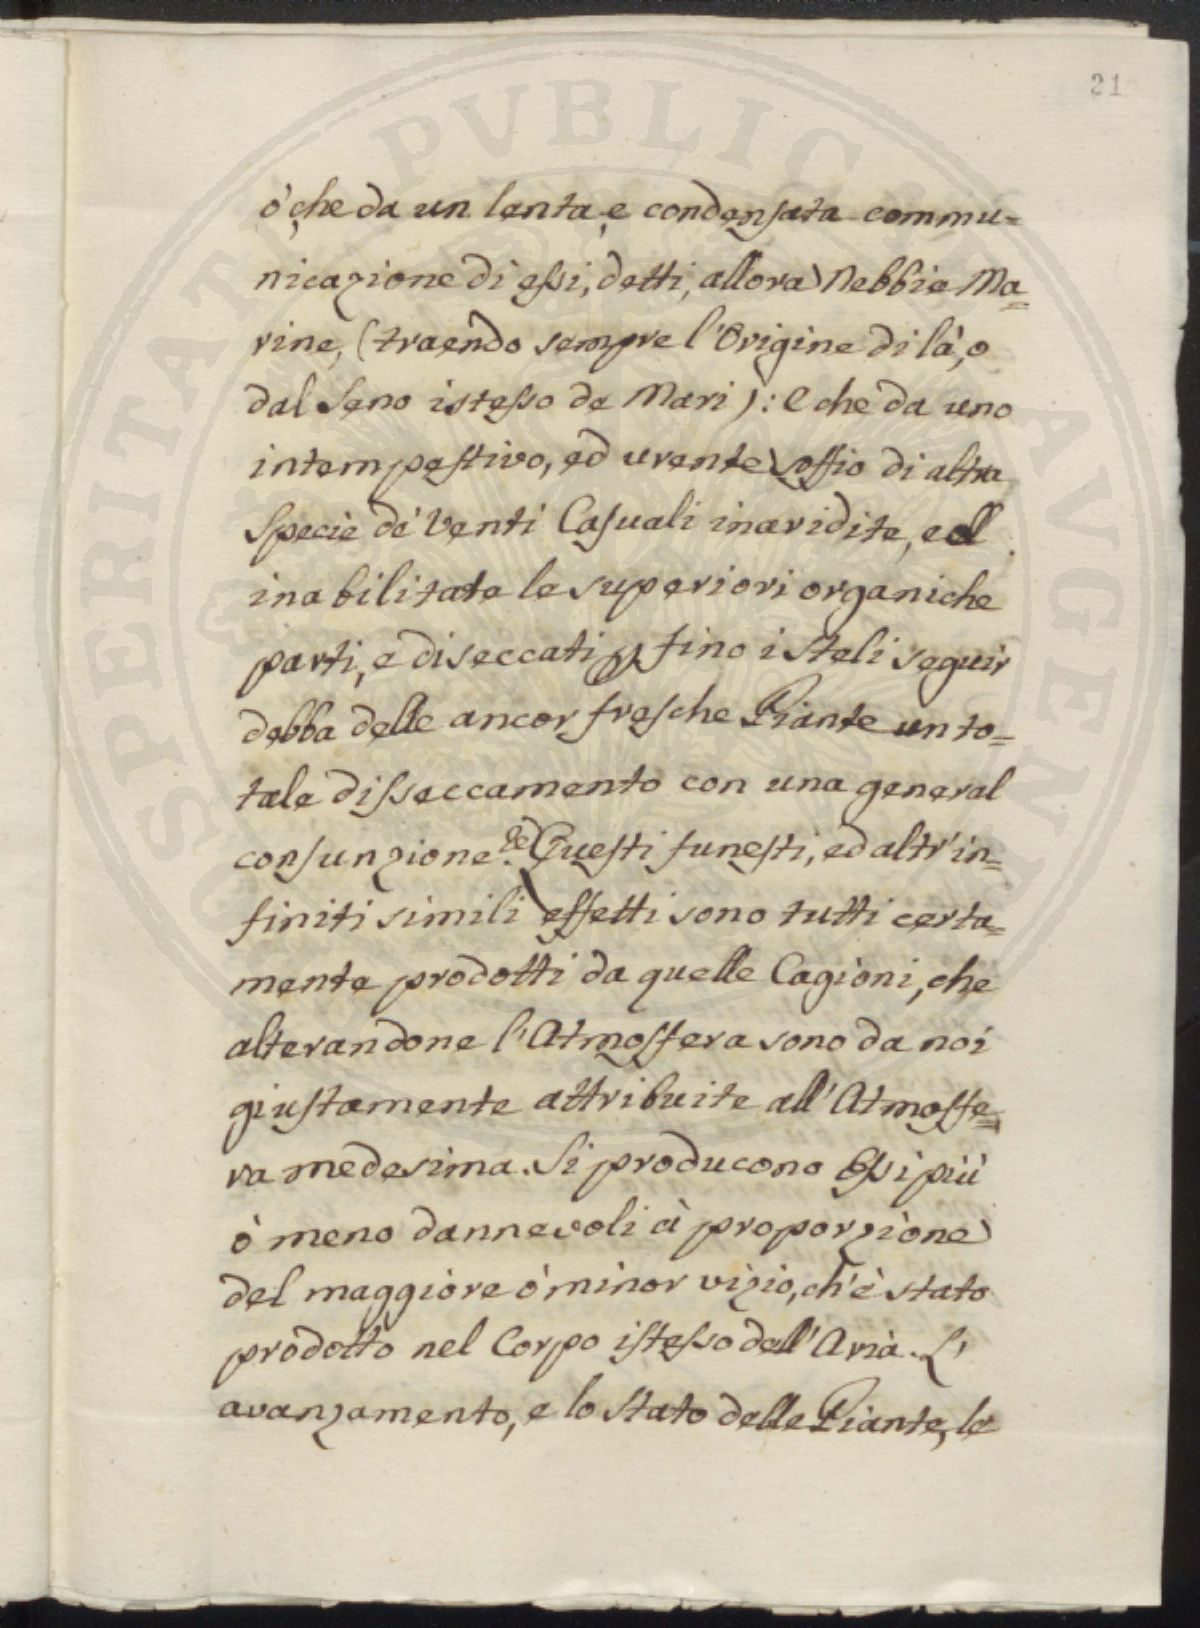 21
ò, che da un lenta, e condensata commu=
nicazione di essi, detti, allora Nebbie Ma=
rine, (traendo sempre l'Origine di là, o
dal seno istesso de Mari): e che da uno
intempestivo, ed urente soffio di altra
Specie de' Venti Casuali inaridite, ed
inabilitate le superiori organiche
parti, e diseccati fino i Steli seguir
debba delle ancor fresche Piante un to=
tale disseccamento con una general
consunzione. Questi funesti, ed altr'in=
finiti simili effetti sono tutti certa=
mente prodotti da quelle Cagioni, che
alterandone l'Atmosfera sono da noi
giustamente attribuite all'Atmosfe=
ra medesima. Si producono Essi più
ò meno dannevoli à proporzione
del maggiore ò minor vizio, ch'è stato
prodotto nel Corpo istesso dell'Aria. L'
avanzamento, e lo Stato delle Piante, le
SOSPERITATI PVBLICAE AVGENDAE